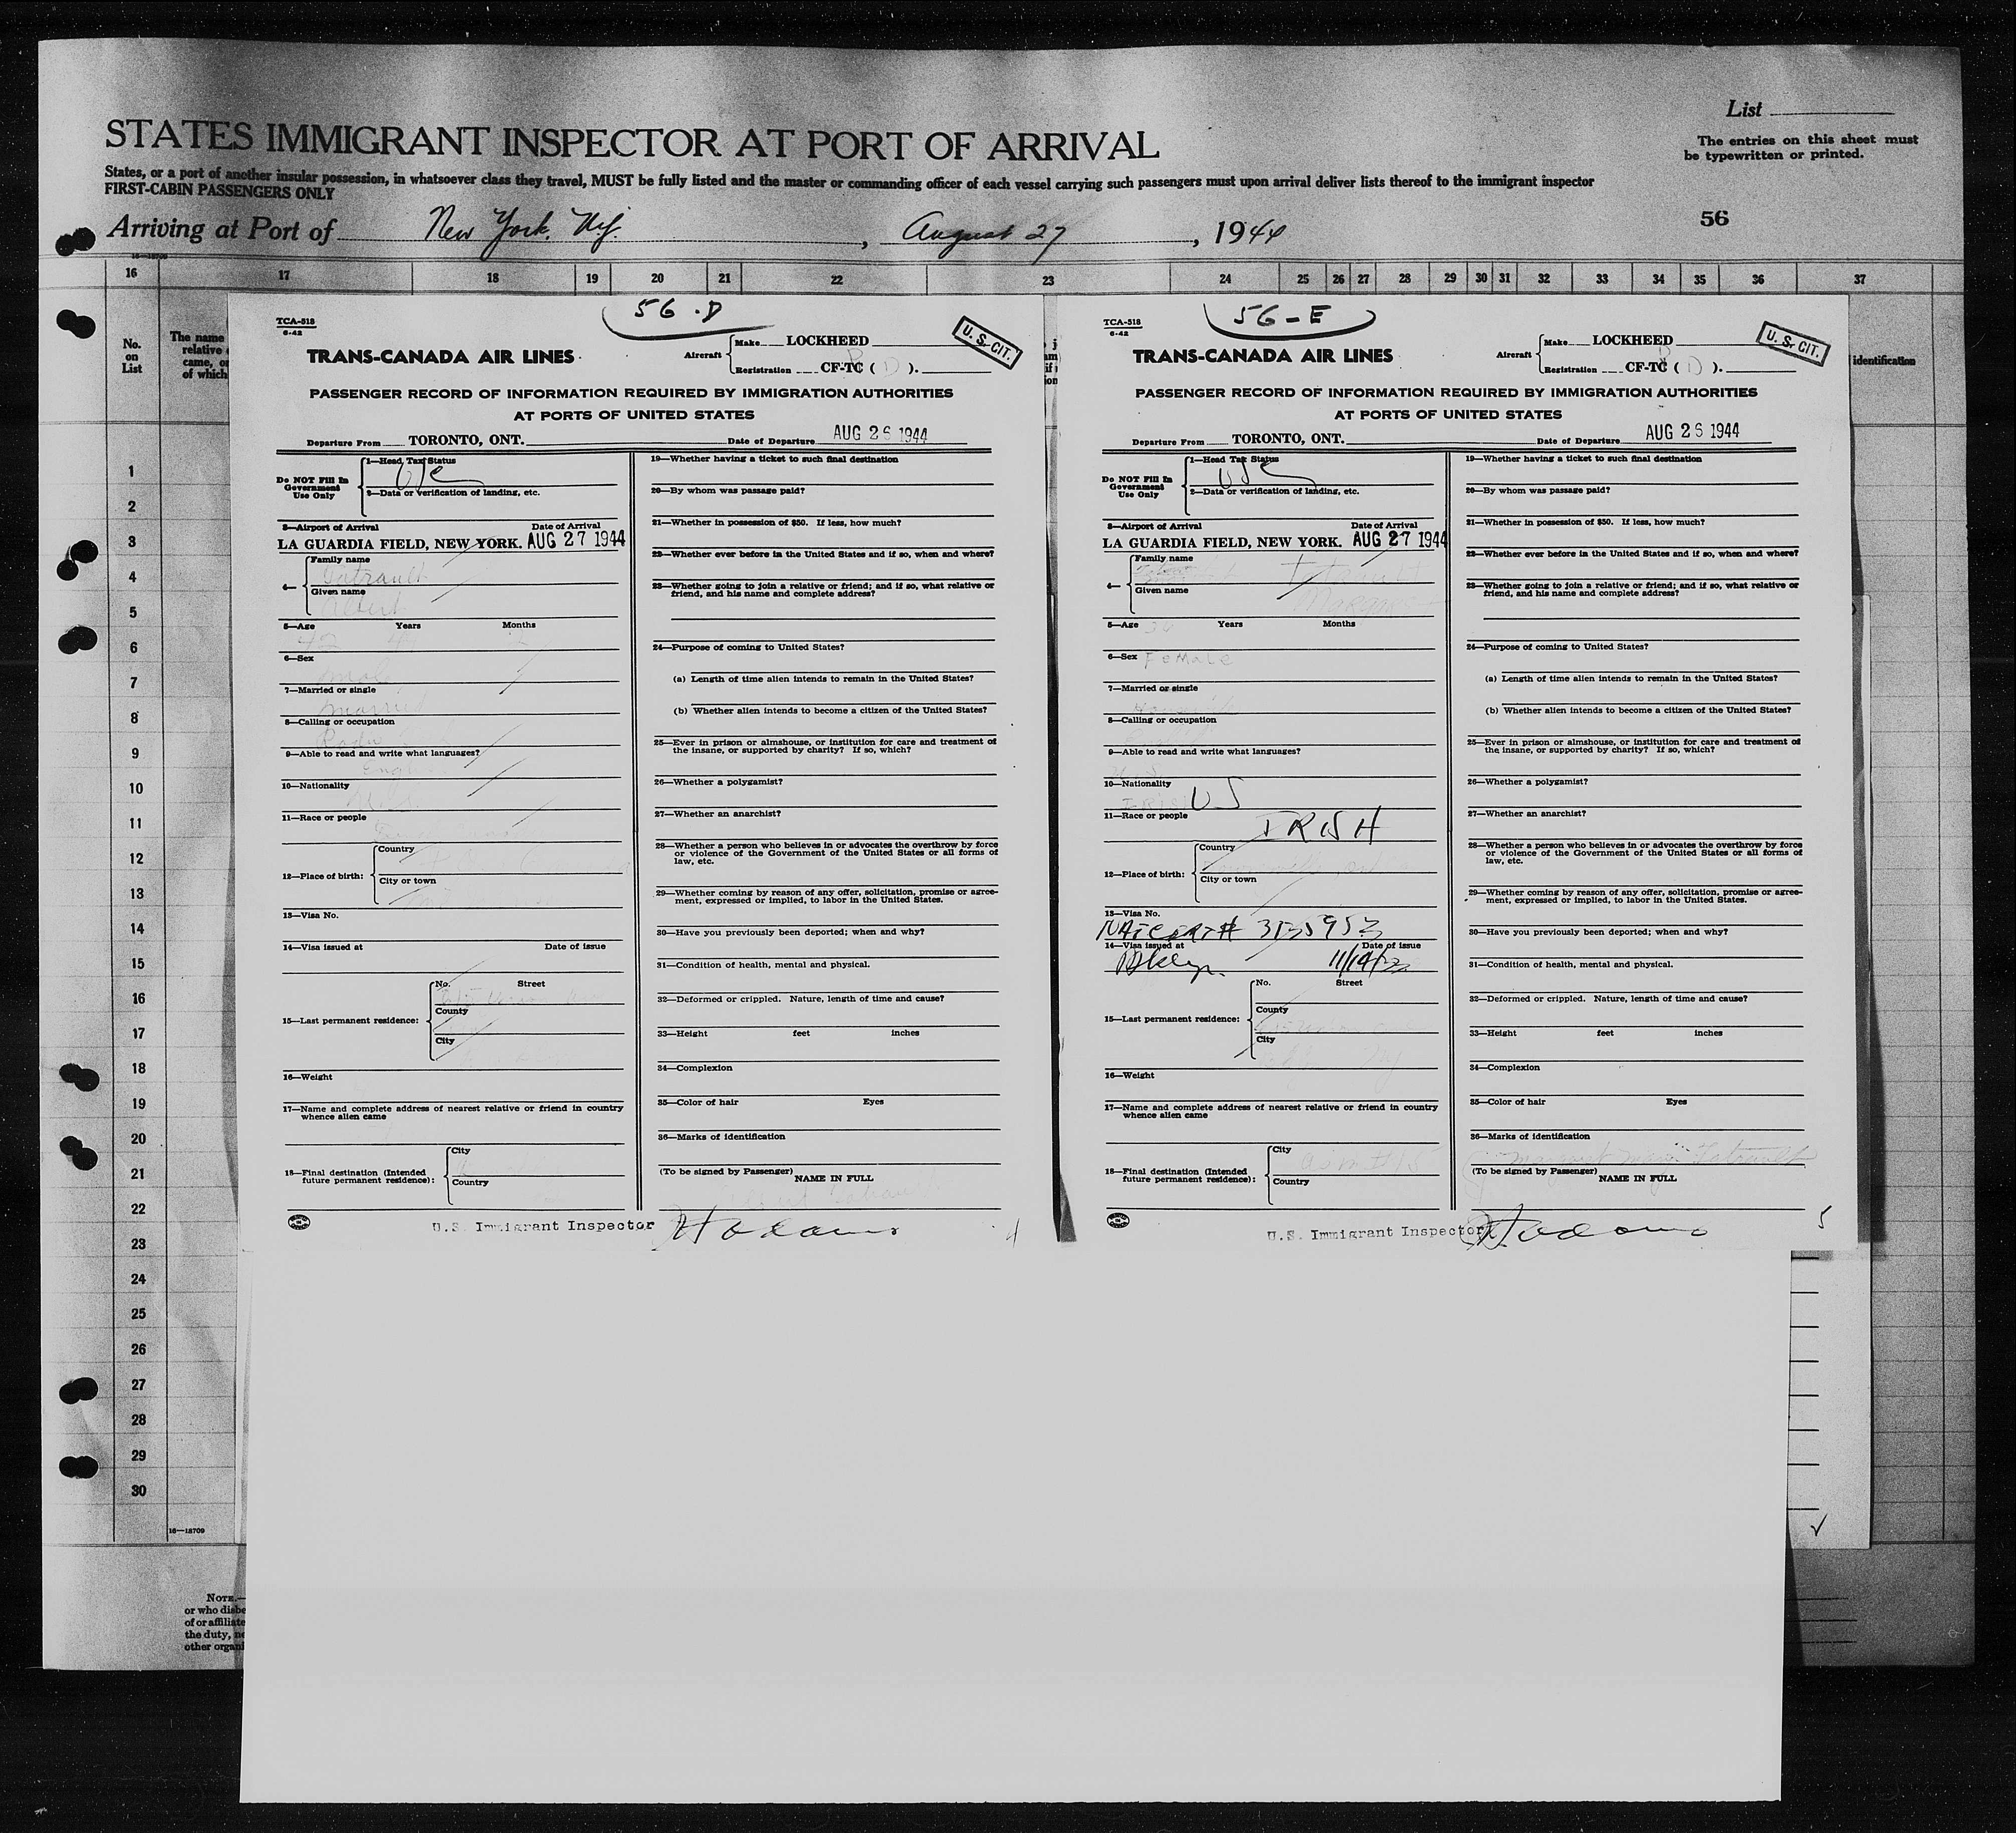 List
STATES IMMIGRANT INSPECTOR AT PORT OF ARRIVAL
The entries on this sheet must
be typewritten or printed.
States, or a port of another insular possession, in whatsoever class they travel, MUST be fully listed and the master or commanding officer of each vessel carrying such passengers must upon arrival deliver lists thereof to the immigrant inspector
FIRST-CABIN PASSENGERS ONLY
56
Arriving at Port of New York, Ny. , August 27 , 1944
16 17 18 19 20 21 22 23 24 25 26 27 28 29 30 31 32 33 34 35 36 37
No.
on
List
The name
relative
came, or
of which
identification
1
2
3
4
5
6
7
8
9
10
11
12
13
14
15
16
17
18
19
20
21
22
23
24
25
26
27
28
29
30
16—18709
NOTE.—
or who disbe
of or affiliate
the duty, ne
other organi
56-D
TCA-518
6-42
TRANS-CANADA AIR LINES
Aircraft
Make LOCKHEED
Registration CF-TC ( D ).
U. S. CIT.
PASSENGER RECORD OF INFORMATION REQUIRED BY IMMIGRATION AUTHORITIES
AT PORTS OF UNITED STATES
Departure From TORONTO, ONT. Date of Departure AUG 26 1944
Do NOT Fill In
Government
Use Only
1—Head Tax Status
USC
2—Data or verification of landing, etc.
3—Airport of Arrival Date of Arrival
LA GUARDIA FIELD, NEW YORK. AUG 27 1944
4—
Family name
Given name
Albert
5—Age Years Months
42
6—Sex
Male
7—Married or single
Married
8—Calling or occupation
Radio
9—Able to read and write what languages?
10—Nationality
11—Race or people
12—Place of birth:
Country
City or town
13—Visa No.
14—Visa issued at Date of issue
15—Last permanent residence:
No. Street
County
City
16—Weight
17—Name and complete address of nearest relative or friend in country
whence alien came
18—Final destination (Intended
future permanent residence):
City
Country
19—Whether having a ticket to such final destination
20—By whom was passage paid?
21—Whether in possession of $50. If less, how much?
22—Whether ever before in the United States and if so, when and where?
23—Whether going to join a relative or friend; and if so, what relative or
friend, and his name and complete address?
24—Purpose of coming to United States?
(a) Length of time alien intends to remain in the United States?
(b) Whether alien intends to become a citizen of the United States?
25—Ever in prison or almshouse, or institution for care and treatment of
the insane, or supported by charity? If so, which?
26—Whether a polygamist?
27—Whether an anarchist?
28—Whether a person who believes in or advocates the overthrow by force
or violence of the Government of the United States or all forms of
law, etc.
29—Whether coming by reason of any offer, solicitation, promise or agree-
ment, expressed or implied, to labor in the United States.
30—Have you previously been deported; when and why?
31—Condition of health, mental and physical.
32—Deformed or crippled. Nature, length of time and cause?
33—Height feet inches
34—Complexion
35—Color of hair Eyes
36—Marks of identification
(To be signed by Passenger)
NAME IN FULL
U.S. Immigrant Inspector
4
56-E
TCA-518
6-42
TRANS-CANADA AIR LINES
Aircraft
Make LOCKHEED
Registration CF-TC ( D ).
U. S. CIT.
PASSENGER RECORD OF INFORMATION REQUIRED BY IMMIGRATION AUTHORITIES
AT PORTS OF UNITED STATES
Departure From TORONTO, ONT. Date of Departure AUG 26 1944
Do NOT Fill In
Government
Use Only
1—Head Tax Status
USC
2—Data or verification of landing, etc.
3—Airport of Arrival Date of Arrival
LA GUARDIA FIELD, NEW YORK. AUG 27 1944
4—
Family name
Given name
5—Age Years Months
6—Sex Female
7—Married or single
8—Calling or occupation
9—Able to read and write what languages?
10—Nationality
US
11—Race or people
IRISH
12—Place of birth:
Country
City or town
13—Visa No.
NAT CERT #
14—Visa issued at Date of issue
Bklyn.
15—Last permanent residence:
No. Street
County
City
16—Weight
17—Name and complete address of nearest relative or friend in country
whence alien came
18—Final destination (Intended
future permanent residence):
City
Country
19—Whether having a ticket to such final destination
20—By whom was passage paid?
21—Whether in possession of $50. If less, how much?
22—Whether ever before in the United States and if so, when and where?
23—Whether going to join a relative or friend; and if so, what relative or
friend, and his name and complete address?
24—Purpose of coming to United States?
(a) Length of time alien intends to remain in the United States?
(b) Whether alien intends to become a citizen of the United States?
25—Ever in prison or almshouse, or institution for care and treatment of
the insane, or supported by charity? If so, which?
26—Whether a polygamist?
27—Whether an anarchist?
28—Whether a person who believes in or advocates the overthrow by force
or violence of the Government of the United States or all forms of
law, etc.
29—Whether coming by reason of any offer, solicitation, promise or agree-
ment, expressed or implied, to labor in the United States.
30—Have you previously been deported; when and why?
31—Condition of health, mental and physical.
32—Deformed or crippled. Nature, length of time and cause?
33—Height feet inches
34—Complexion
35—Color of hair Eyes
36—Marks of identification
(To be signed by Passenger)
NAME IN FULL
U.S. Immigrant Inspector
5